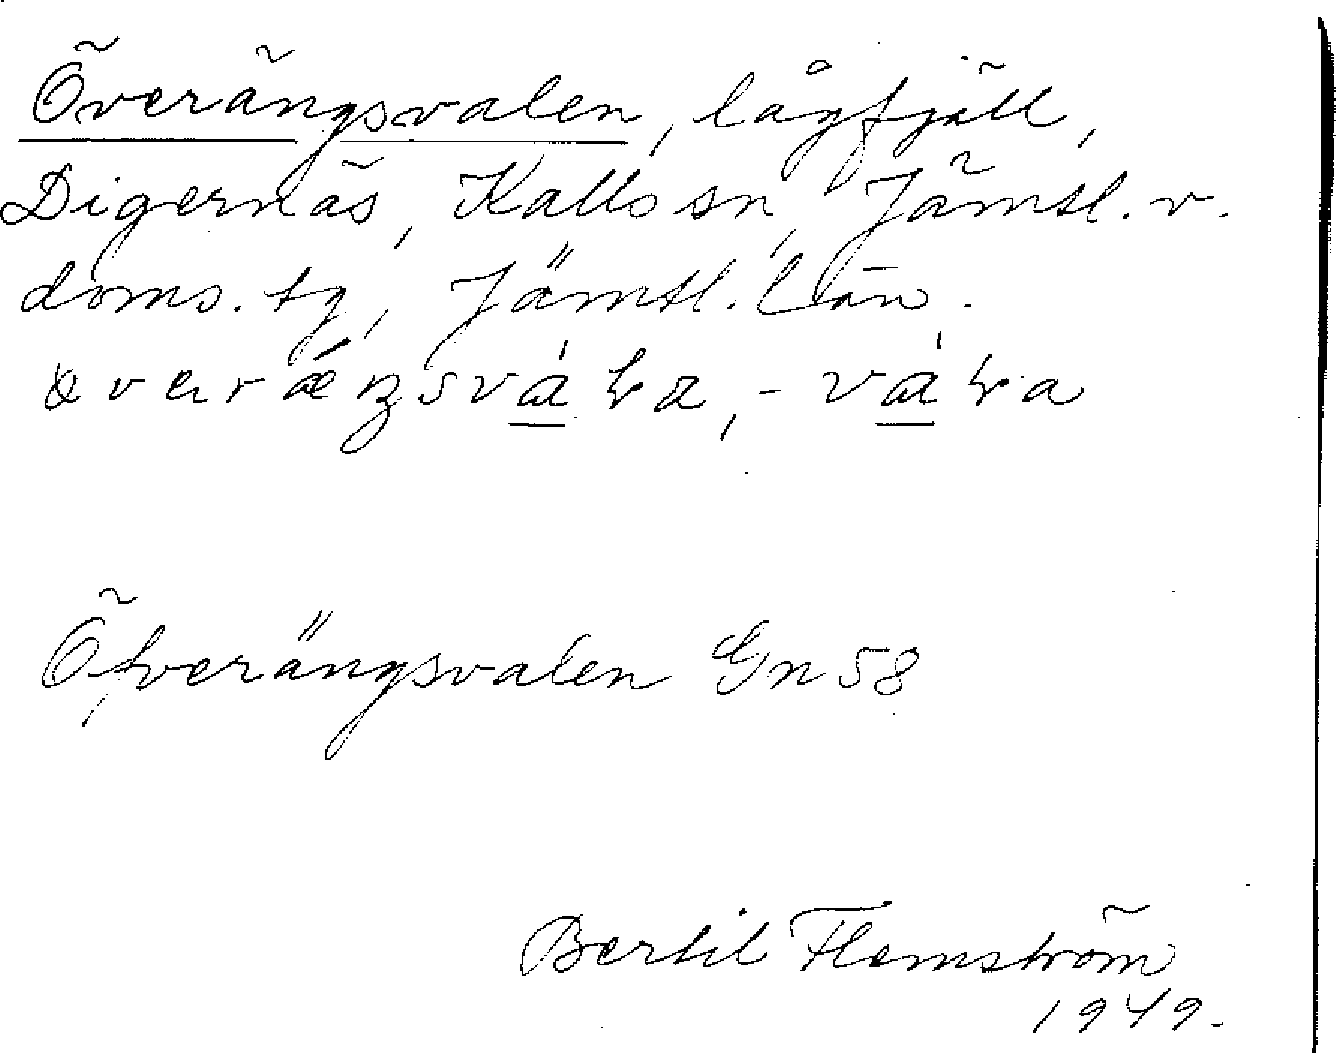 Överängsvalen, lågfjäll,
Digernäs, Kalls sn, Jämtl. v.
doms. tg, Jämtl. län.
Öfverängsvalen Gn 58
Bertil Flemström
1949.